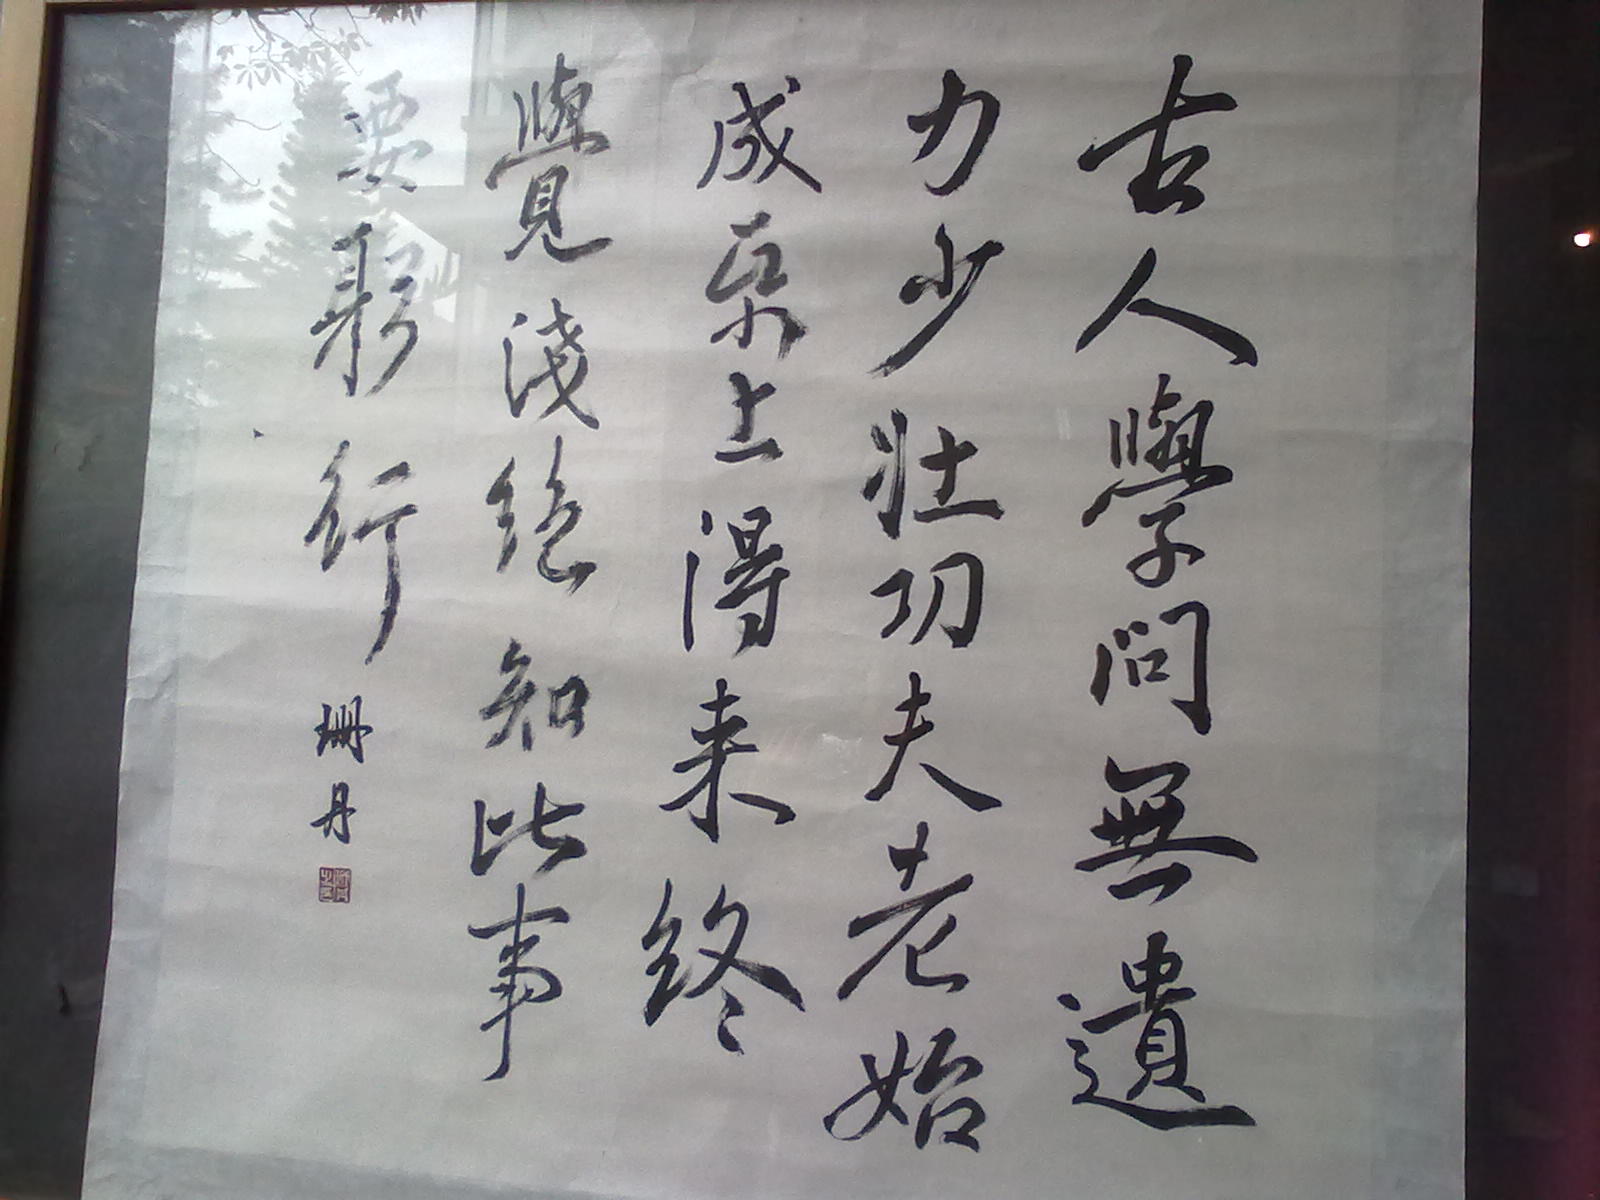 古人學問無遺
力少壯功夫老始
成帋上得来終
覺淺絕知此事
要躬行
珊丹